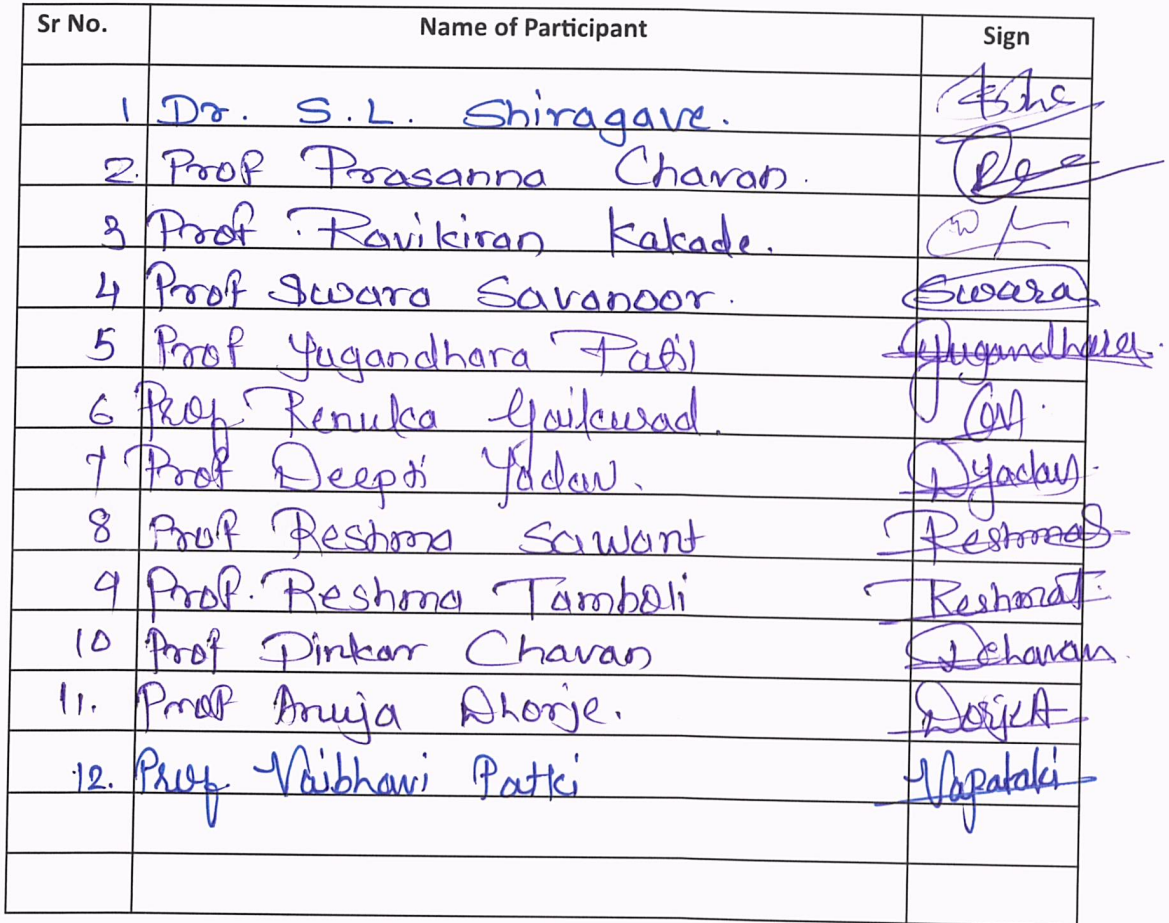 Sr No. Name of Participant Sign
1 Dr. S.L. Shiragave.
2. Prof Prasanna Chavan.
3 Prof. Ravikiran Kakade.
4 Prof Swara Savanoor. Swara
5 Prof Yugandhara Patil Yugandhara.
6 Prof. Renuka Gaikwad.
7 Prof Deepti Yadav. DYadav.
8 Prof Reshma Sawant ReshmaS
9 Prof. Reshma Tamboli ReshmaT.
10 Prof Dinkar Chavan DChavan.
11. Prof Anuja Dhorje. DorjeA
12. Prof Vaibhavi Patki Vapataki